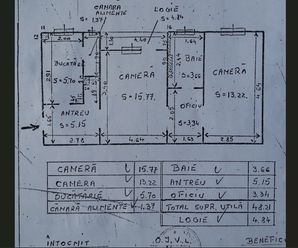 CAMARA
ALIMENTE
S=1.37
LOGIE
S=4.84
BUCATARIE
S=5.70
CAMERĂ
S=15.77
BAIE
S=3.66
CAMERĂ
S=13.22
ANTREU
S=5.15
OFICIU
S=3.34
2.78
4.64
1.63
2.85
CAMERĂ 15.77 BAIE 3.66
CAMERA 13.22 ANTREU 5.15
BUCATARIE 5.70 OFICIU 3.34
CAMARĂ ALIMENTE 1.37 TOTAL SUPR. UTILĂ 48.21
LOGIE 4.84
INTOCMIT O.J.V.L. BENEFICIAR